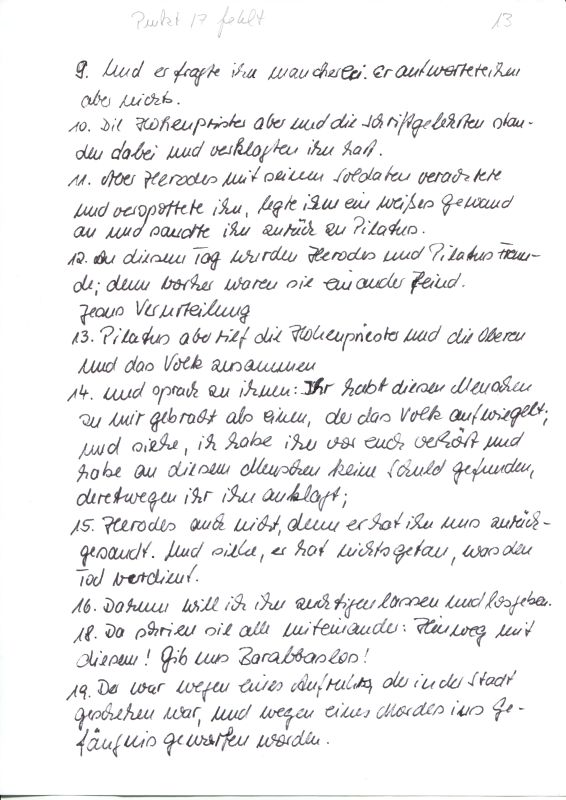 Punkt 17 fehlt
13
9. Und er fragte ihn mancherlei. Er antwortete ihm
aber nichts.
10. Die Hohenpriester aber und die Schriftgelehrten stan-
den dabei und verklagten ihn hart.
11. Aber Herodes mit seinen Soldaten verachtete
und verspottete ihn, legte ihm ein weißes Gewand
an und sandte ihn zurück zu Pilatus.
12. An diesem Tag wurden Herodes und Pilatus Freun-
de; denn vorher waren sie einander Feind.
Jesus Verurteilung
13. Pilatus aber rief die Hohenpriester und die Oberen
und das Volk zusammen
14. und sprach zu ihnen: Ihr habt diesen Menschen
zu mir gebracht als einen, der das Volk aufwiegelt;
und siehe, ich habe ihn vor euch verhört und
habe an diesem Menschen keine Schuld gefunden,
deretwegen ihr ihn anklagt;
15. Herodes auch nicht, denn er hat ihn uns zurück-
gesandt. Und siehe, er hat nichts getan, was den
Tod verdient.
16. Darum will ich ihn züchtigen lassen und losgeben.
18. Da schrien sie alle miteinander: Hinweg mit
diesem! Gib uns Barabbas los!
19. Der war wegen eines Aufruhrs, der in der Stadt
geschehen war, und wegen eines Mordes ins Ge-
fängnis geworfen worden.